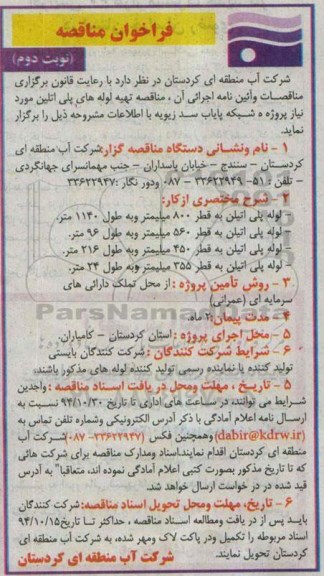 فراخوان مناقصه
(نوبت دوم)
شرکت آب منطقه ای کردستان در نظر دارد با رعایت قانون برگزاری
مناقصات وآئین نامه اجرائی آن ، مناقصه تهیه لوله های پلی اتلین مورد
نیاز پروژه ه شبکه پایاب سد زیویه با اطلاعات مشروحه ذیل را برگزار
نماید.
۱ - نام ونشانی دستگاه مناقصه گزار:شرکت آب منطقه ای
کردستان - سنندج - خیابان پاسداران - جنب مهمانسرای جهانگردی
- تلفن : ۵۱- ۳۳۶۲۲۹۴۹ - ۰۸۷ ودور نگار :۳۳۶۲۲۹۴۷
۲ - شرح مختصری ازکار:
- لوله پلی اتیلن به قطر ۸۰۰ میلیمتر وبه طول ۱۱۴۰ متر.
- لوله پلی اتیلن به قطر ۵۶۰ میلیمتر وبه طول ۹۶ متر.
- لوله پلی اتیلن به قطر ۴۵۰ میلیمتر وبه طول ۲۱۶ متر.
- لوله پلی اتیلن به قطر ۳۵۵ میلیمتر وبه طول ۲۴ متر.
۳ - روش تأمین پروژه : از محل تملک دارائی های
سرمایه ای (عمرانی)
۴ - مدت پیمان:۲ ماه.
۵ - محل اجرای پروژه : استان کردستان - کامیاران.
۶ - شرایط شرکت کنندگان : شرکت کنندگان بایستی
تولید کننده یا نماینده رسمی تولید کننده لوله های مذکور باشند.
۵ - تاریخ ، مهلت ومحل در یافت اسناد مناقصه : واجدین
شرایط می توانند، در ساعت های اداری تا تاریخ ۹۴/۱۰/۳۰ نسبت به
ارسال نامه اعلام آمادگی با ذکر آدرس الکترونیکی وشماره تلفن تماس به
(dabir@kdrw.ir) وهمچنین فکس (۳۳۶۲۲۹۴۷-۰۸۷) شرکت آب
منطقه ای کردستان اقدام نمایند.اسناد ومدارک مناقصه برای شرکت هائی
که تا تاریخ مذکور بصورت کتبی اعلام آمادگی نموده اند، متعاقبا" به آدرس
قید شده در در خواست ارسال خواهد شد.
۶ - تاریخ، مهلت ومحل تحویل اسناد مناقصه:شرکت کنندگان
باید پس از در یافت ومطالعه اسناد مناقصه ، حداکثر تا تاریخ۹۴/۱۰/۱۵
اسناد مربوطه را تکمیل ودر پاکت لاک ومهر شده، به شرکت آب منطقه ای
کردستان تحویل نمایند.
شرکت آب منطقه ای کردستان